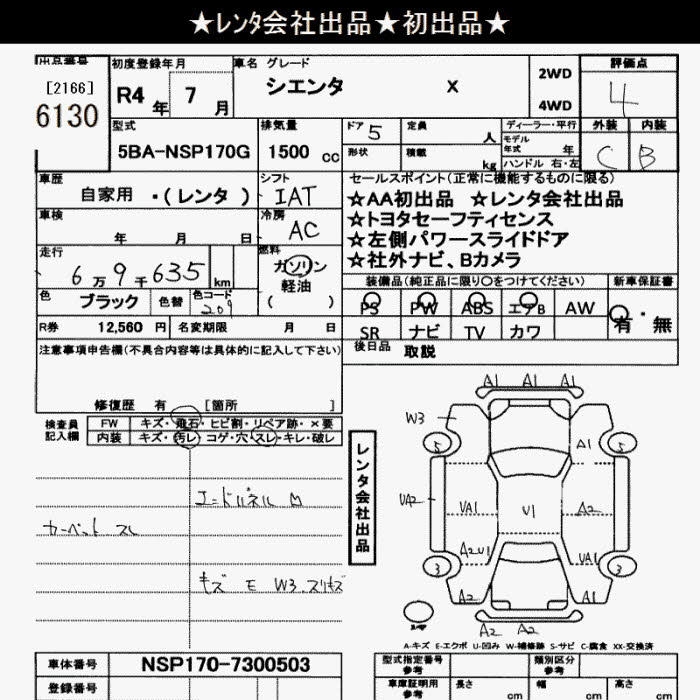 ★レンタ会社出品★初出品★
出品番号
[2166]
6130
初度登録年月
R4 年 7 月
車名 グレード
シエンタ X
2WD
4WD
評価点
4
外装 内装
C B
型式
5BA-NSP170G
排気量
1500 cc
ドア 5
定員 人
形状
積載 kg
ディーラー・平行
モデル年式 年
ハンドル 右・左
車歴
自家用 ・(レンタ )
シフト
IAT
車検
年 月 日
冷房
AC
走行
6万9千635 km
燃料
ガソリン
軽油
( )
色
ブラック
色替
色コード
209
R券 12,560 円
名変期限 月 日
セールスポイント(正常に機能するものに限る)
★AA初出品 ★レンタ会社出品
★トヨタセーフティセンス
★左側パワースライドドア
★社外ナビ、Bカメラ
装備品(純正品に限り○をつけてください)
新車保証書
PS PW ABS エアB AW
有・無
SR ナビ TV カワ
後日品 取説
注意事項申告欄(不具合内容等は具体的に記入して下さい)
修復歴 有 [箇所 ]
検査員記入欄
FW キズ・飛石・ヒビ割・リペア跡・×要
内装 キズ・汚レ・コゲ・穴・スレ・キレ・破レ
カーペット スレ
キズ E W3.スリキズ
レンタ会社出品
A1 A1 A1
W3
5 5
A1
UA2
UA1 U1 A2
A2U1 UA1
3 3
A2 A1
A2 A2
A-キズ E-エクボ U-凹み W-補修跡 S-サビ C-腐食 XX-交換済
車体番号 NSP170-7300503
登録番号
型式指定番号 参考
類別区分 参考
車庫証明用 参考
長さ cm
幅 cm
高さ cm